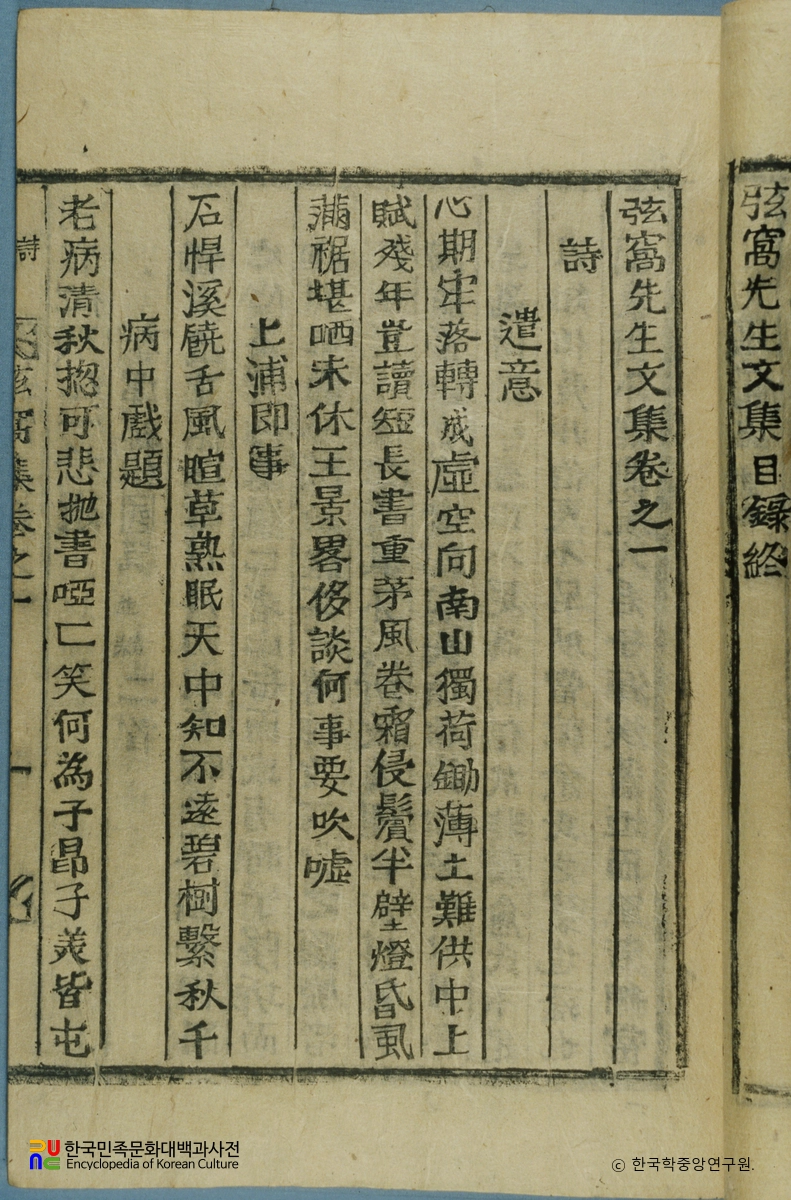 弦窩先生文集目錄終
弦窩先生文集卷之一
詩
遣意
心期牢落轉成虛空向南山獨荷鋤薄土難供中上
賦殘年豈讀短長書重茅風卷霜侵鬢半壁燈昏虱
滿裾堪哂未休王景畧侈談何事要吹噓
上浦卽事
石悍溪饒舌風暄草熟眠天中知不遠碧樹繫秋千
病中戲題
老病清秋揔可悲抛書啞亡笑何為子昂子羙皆屯
詩
弦窩集卷之一
一
한국민족문화대백과사전
Encyclopedia of Korean Culture
ⓒ 한국학중앙연구원.